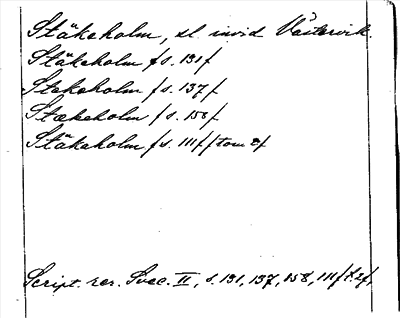 Stäkeholm, sl. invid Västervik.
Stäkeholm /s. 131/
Stekeholm /s. 137/
Stækeholm /s. 158/
Stäkeholm /s. 111//tom 2/
Script. rer. Svec. II, s. 131, 137, 158, 111/t.2/,